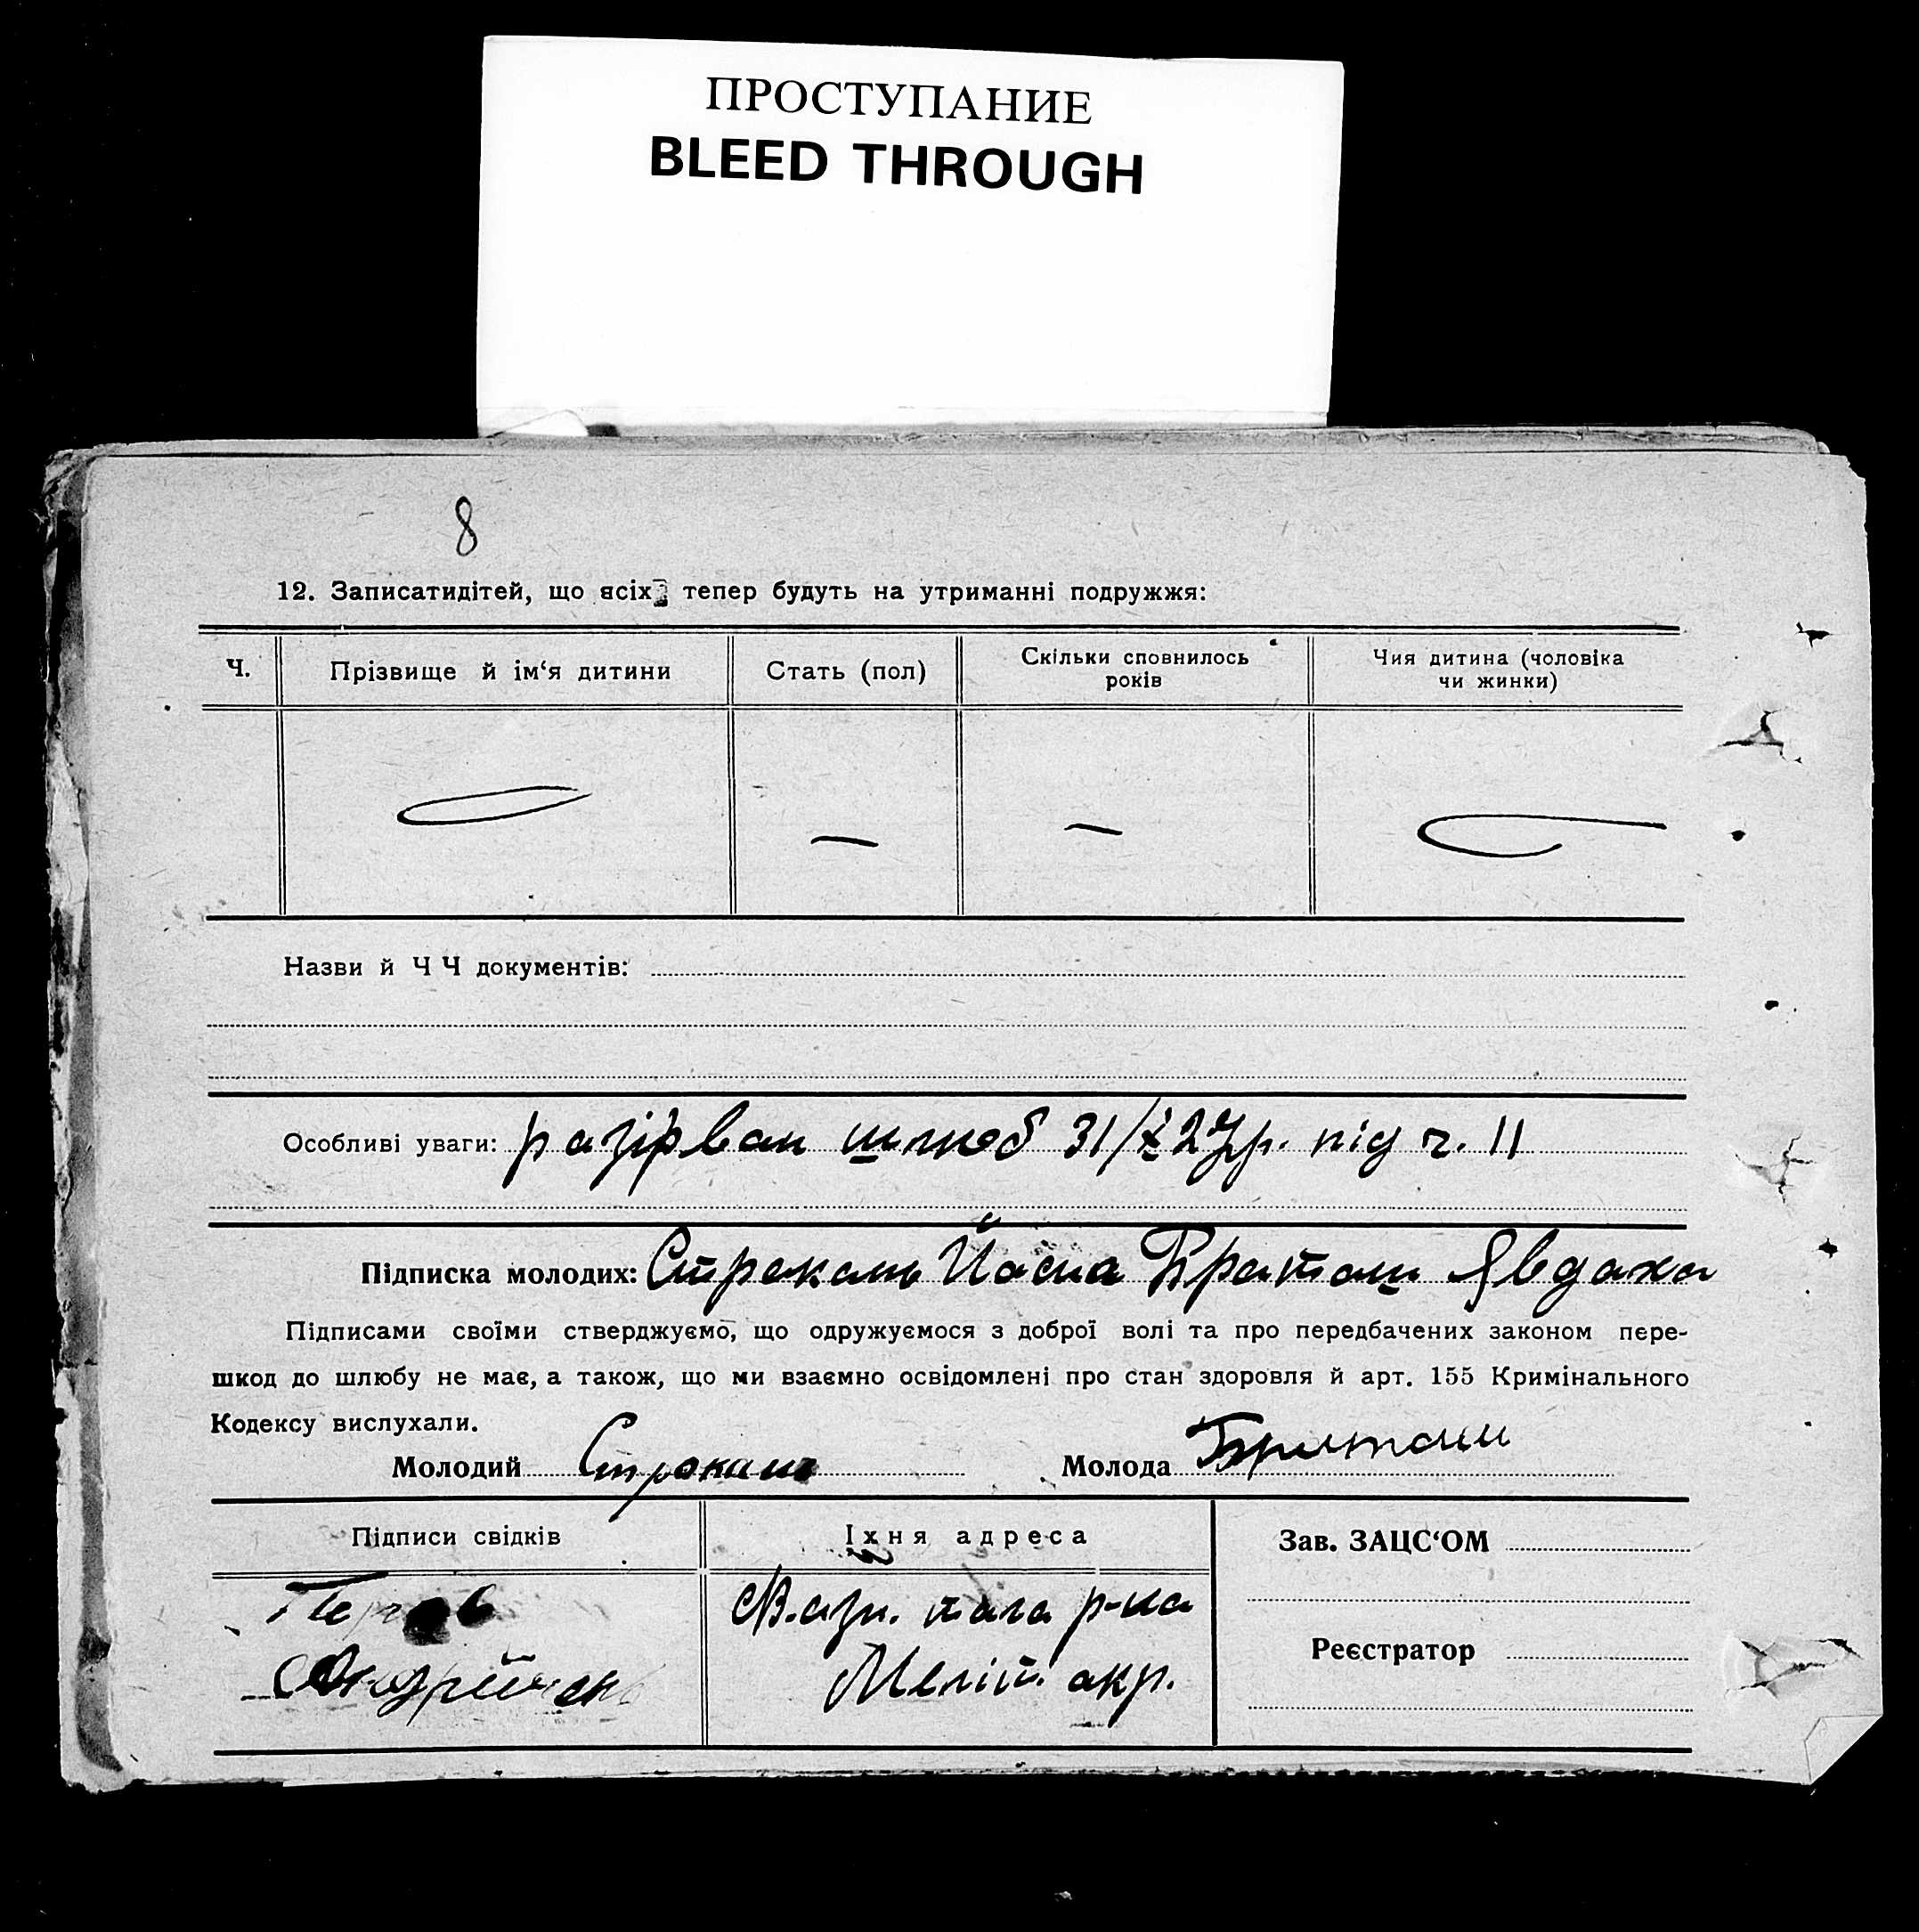 ПРОСТУПАНИЕ
BLEED THROUGH
8
12. Записатидітей, що всіх тепер будуть на утриманні подружжя:
Ч.
Прізвище й ім‘я дитини
Стать (пол)
Скільки сповнилось
років
Чия дитина (чоловіка
чи жинки)
— — —
Назви й Ч Ч документів:
Особливі уваги: разірван шлюб 31/X 27р. під ч. 11
Підписка молодих: Стрекань Браташ Явдаха
Підписами своїми стверджуємо, що одружуємося з доброї волі та про передбачених законом пере-
шкод до шлюбу не має, а також, що ми взаємно освідомлені про стан здоровля й арт. 155 Кримінального
Кодексу вислухали.
Молодий
Молода
Підписи свідків
Їхня адреса
Зав. ЗАЦС‘ОМ
Реєстратор
р-на
Меліт. окр.